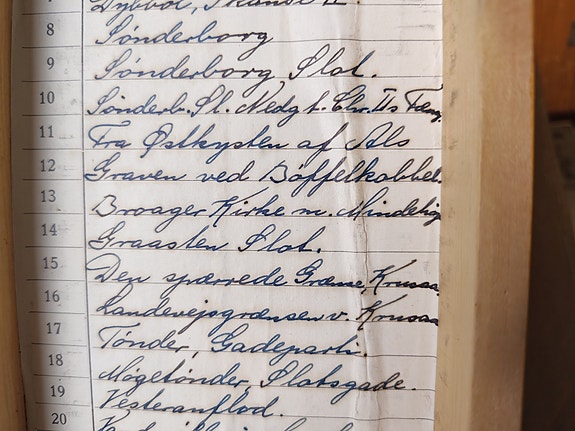 Dybbøl, Skanse II.
8 Sønderborg
9 Sønderborg Slot.
10 Sønderb. Sl. Nedg t. Chr. IIs Fæng.
11 Fra Østkysten af Als
12 Graven ved Bøffelkobbel.
13 Broager Kirke m. Mindelig
14 Graasten Slot.
15 Den spærrede Grænse, Krusaa
16 Landevejsgrænsen v. Krusaa
17 Tønder, Gadeparti.
18 Møgeltønder, Slotsgade.
19 Vesteranflod.
20